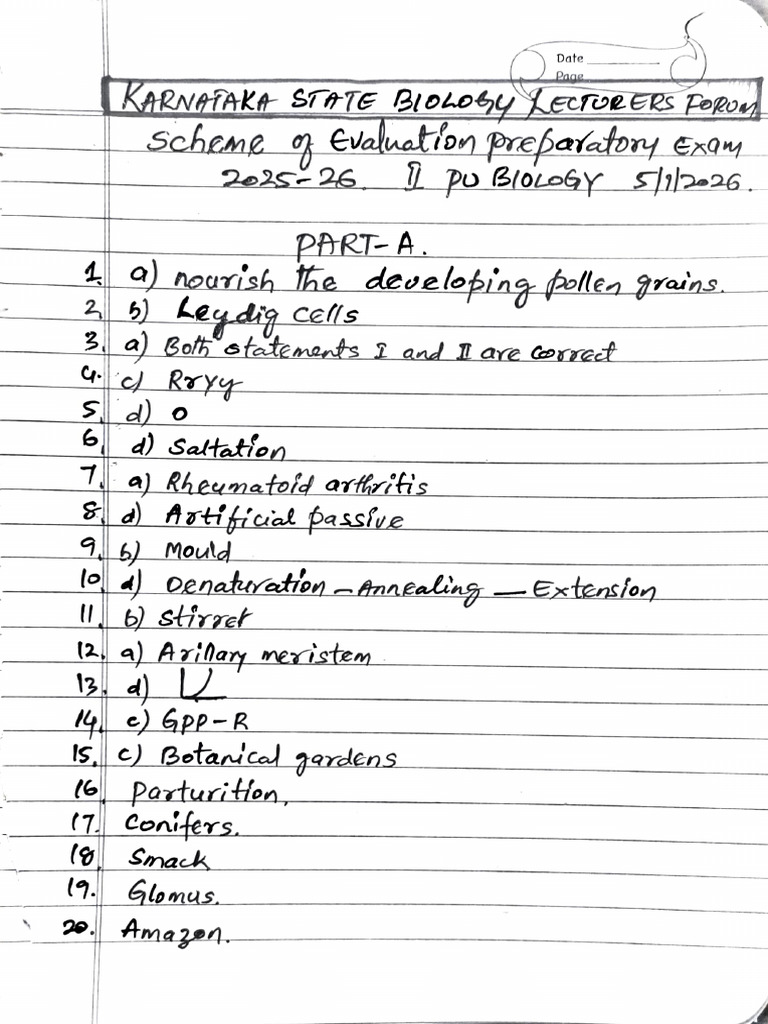 Date
Page
KARNATAKA STATE BIOLOGY LECTURERS FORUM
Scheme of Evaluation preparatory Exam
2025-26. II PU BIOLOGY 5/1/2026.
PART-A.
1. a) nourish the developing pollen grains.
2. b) Leydig cells
3. a) Both statements I and II are correct
4. c) RrYy
5. d) O
6. d) Saltation
7. a) Rheumatoid arthritis
8. d) Artificial passive
9. b) Mould
10. d) Denaturation - Annealing - Extension
11. b) Stirrer
12. a) Axillary meristem
13. d)
14. c) GPP-R
15. c) Botanical gardens
16. Parturition.
17. Conifers.
18. Smack
19. Glomus.
20. Amazon.